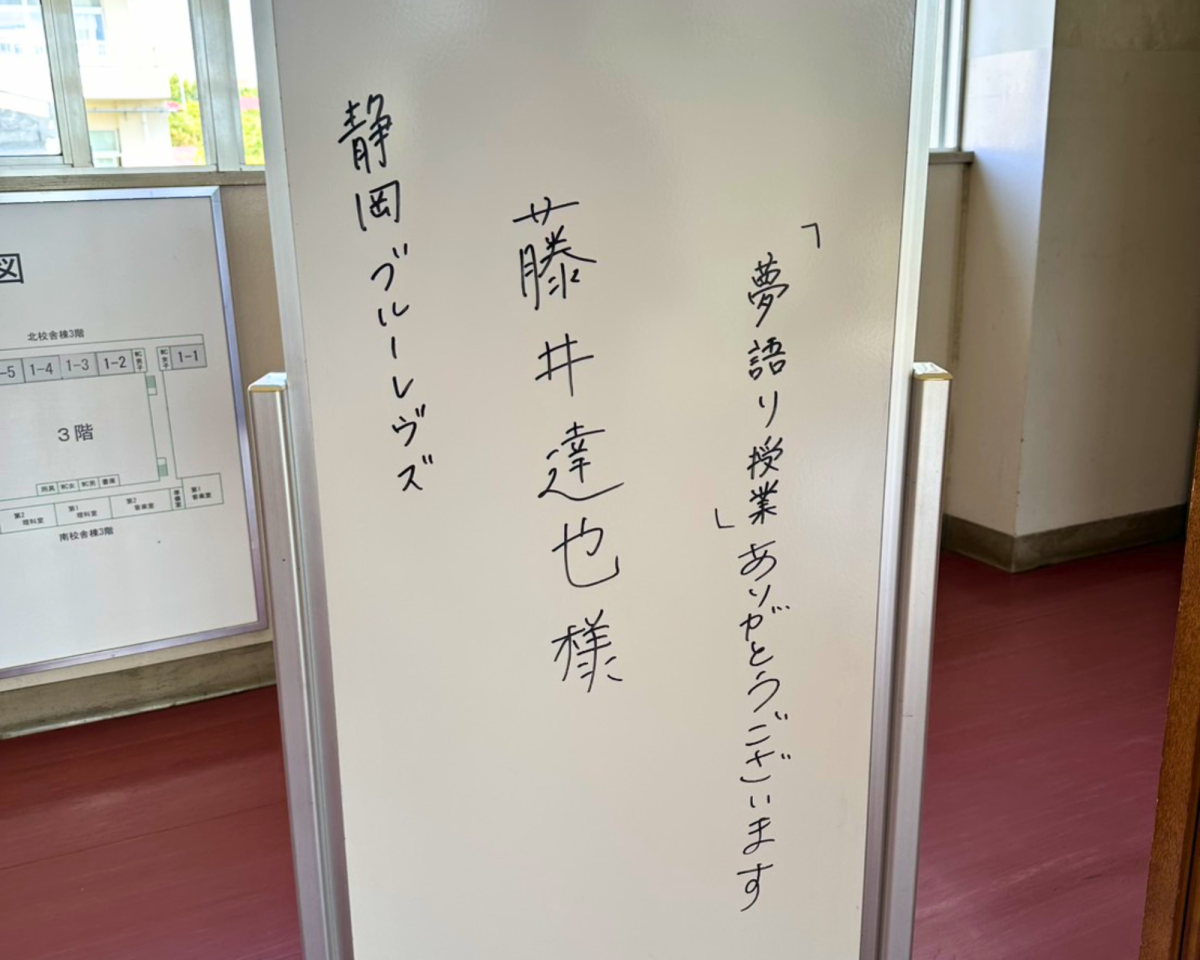 「夢語り授業」ありがとうございます
藤井達也様
静岡ブルーレヴズ
図
北校舎棟3階
-5 1-4 1-3 1-2 1-1
3階
第2理科室 第1理科室 第2音楽室 準備室 第1音楽室
南校舎棟3階